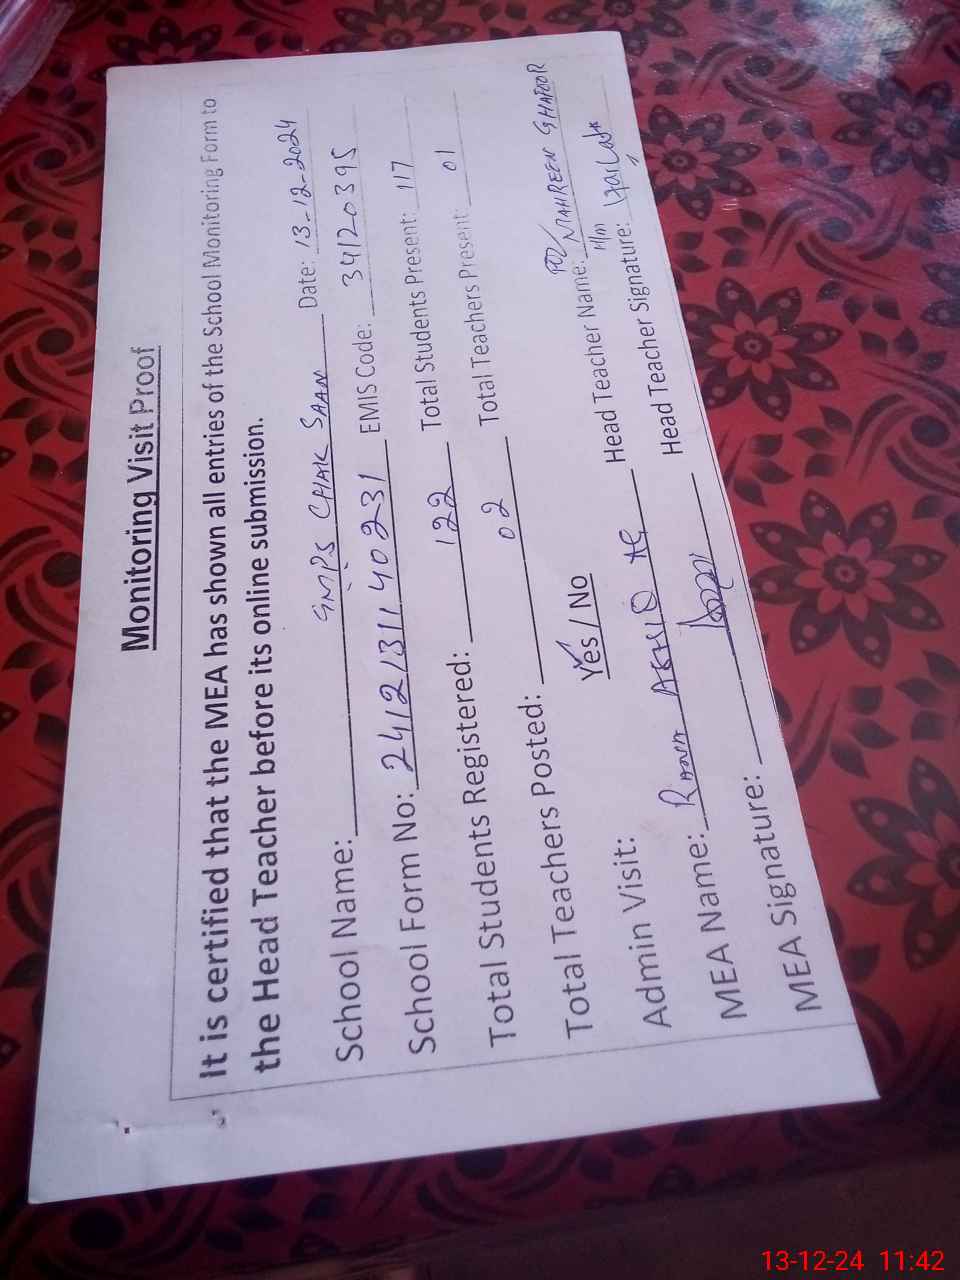 Monitoring Visit Proof
It is certified that the MEA has shown all entries of the School Monitoring Form to
the Head Teacher before its online submission.
School Name: GMPS CHAK SAAN Date: 13-12-2024
School Form No: 2412131140231 EMIS Code: 34120395
Total Students Registered: 122 Total Students Present: 117
Total Teachers Posted: 02 Total Teachers Present: 01
Admin Visit: Yes / No
MEA Name: Head Teacher Name: NAHREEN GHAFOOR
MEA Signature: Head Teacher Signature:
13-12-24 11:42